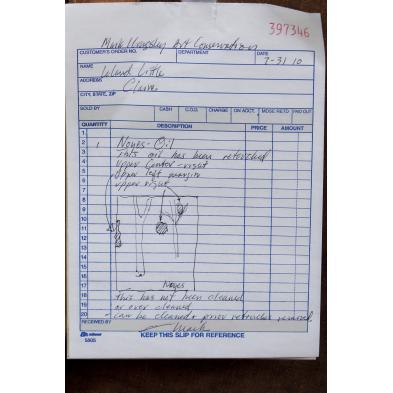 397346
Mark Art Conservation
CUSTOMER'S ORDER NO. DEPARTMENT DATE
7-31 10
NAME
Leland Little
ADDRESS
CITY, STATE, ZIP
SOLD BY CASH C.O.D. CHARGE ON ACCT. MDSE. RETD. PAID OUT
QUANTITY DESCRIPTION PRICE AMOUNT
1
2 1 Noyes - Oil
3 This oil has been retouched
4 upper center - right
5 upper left margin
6 upper right
7
8
9
10
11
12
13
14
15
16
17 Noyes
18 this has not been cleaned
19 or over cleaned
20 - can be cleaned + prior retouches removed.
RECEIVED BY
Mark
5805 KEEP THIS SLIP FOR REFERENCE